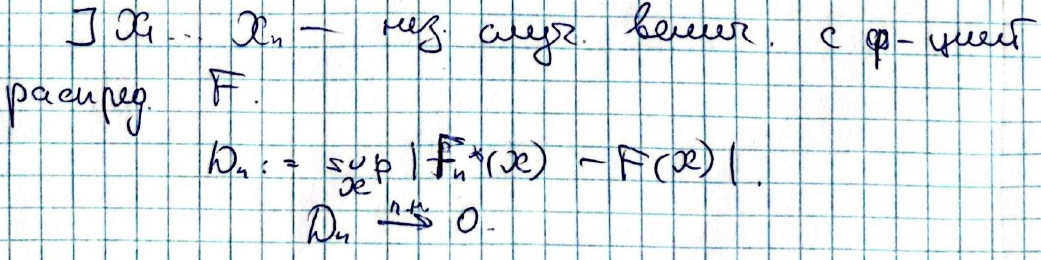 ] X₁ ... Xₙ — нез. случ. велич. с ф-цией
распред. F.
Dₙ := sup |Fₙ*(x) - F(x)|.
x
Dₙ п.н.→ 0.